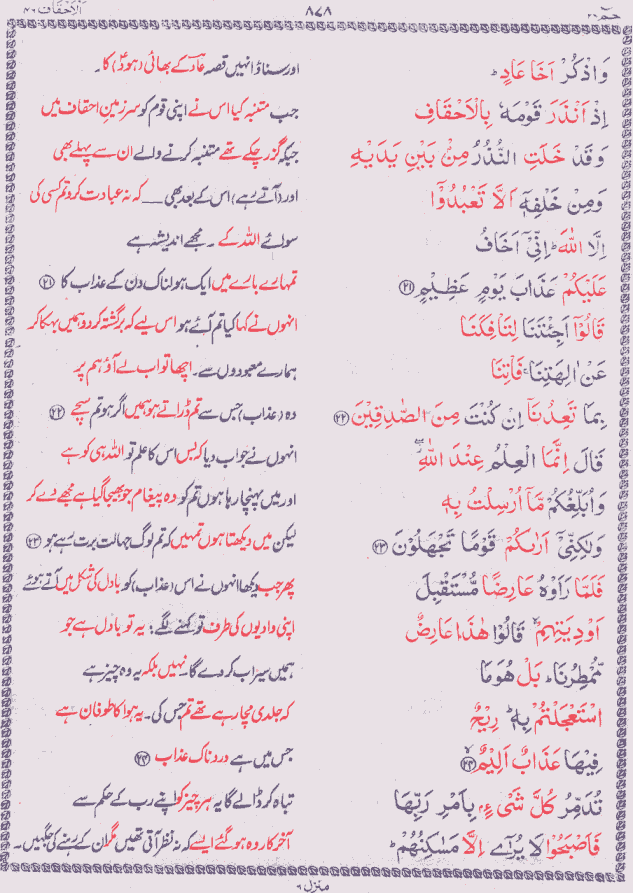 الاحقاف ۴۶
۸۷۸
حٰمٓ ۲۶
وَاذْكُرْ اَخَا عَادٍؕ
اور سناؤ انہیں قصہ عاد کے بھائی (ہودؑ) کا۔
اِذْ اَنْذَرَ قَوْمَهٗ بِالْاَحْقَافِ
جب متنبہ کیا اس نے اپنی قوم کو سرزمینِ احقاف میں
وَقَدْ خَلَتِ النُّذُرُ مِنْۢ بَيْنِ يَدَيْهِ
جبکہ گزر چکے تھے متنبہ کرنے والے ان سے پہلے بھی
وَمِنْ خَلْفِهٖۤ اَلَّا تَعْبُدُوْۤا
اور (آتے رہے) اس کے بعد بھی ـــ کہ نہ عبادت کرو تم کسی کی
اِلَّا اللّٰهَؕ اِنِّيْۤ اَخَافُ
سوائے اللہ کے۔ مجھے اندیشہ ہے
عَلَيْكُمْ عَذَابَ يَوْمٍ عَظِيْمٍ ﴿۲۱﴾
تمہارے بارے میں ایک ہولناک دن کے عذاب کا ﴿۲۱﴾
قَالُوْۤا اَجِئْتَنَا لِتَاْفِكَنَا
انہوں نے کہا کیا تم آئے ہو اس لیے کہ برگشتہ کردو ہمیں بہکا کر
عَنْ اٰلِهَتِنَاۚ فَاْتِنَا
ہمارے معبودوں سے۔ اچھا تو اب لے آؤ ہم پر
بِمَا تَعِدُنَاۤ اِنْ كُنْتَ مِنَ الصّٰدِقِيْنَ ﴿۲۲﴾
وہ (عذاب) جس سے تم ڈراتے ہو ہمیں اگر ہو تم سچے ﴿۲۲﴾
قَالَ اِنَّمَا الْعِلْمُ عِنْدَ اللّٰهِؗ
انہوں نے جواب دیا کہ بس اس کا علم تو اللہ ہی کو ہے
وَاُبَلِّغُكُمْ مَّاۤ اُرْسِلْتُ بِهٖ
اور میں پہنچا رہا ہوں تم کو وہ پیغام جو بھیجا گیا ہے مجھے دے کر
وَلٰكِنِّيْۤ اَرٰىكُمْ قَوْمًا تَجْهَلُوْنَ ﴿۲۳﴾
لیکن میں دیکھتا ہوں تمہیں کہ تم لوگ جہالت برت رہے ہو ﴿۲۳﴾
فَلَمَّا رَاَوْهُ عَارِضًا مُّسْتَقْبِلَ
پھر جب دیکھا انہوں نے اس (عذاب) کو بادل کی شکل میں آتے ہوئے
اَوْدِيَتِهِمْۙ قَالُوْا هٰذَا عَارِضٌ
اپنی وادیوں کی طرف تو کہنے لگے: یہ تو بادل ہے جو
مُّمْطِرُنَاؕ بَلْ هُوَ مَا
ہمیں سیراب کردے گا۔ نہیں بلکہ یہ وہ چیز ہے
اسْتَعْجَلْتُمْ بِهٖؕ رِيْحٌ
کہ جلدی مچا رہے تھے تم جس کی۔ یہ ہوا کا طوفان ہے
فِيْهَا عَذَابٌ اَلِيْمٌۙ ﴿۲۴﴾
جس میں ہے دردناک عذاب ﴿۲۴﴾
تُدَمِّرُ كُلَّ شَيْءٍۭ بِاَمْرِ رَبِّهَا
تباہ کر ڈالے گا یہ ہر چیز کو اپنے رب کے حکم سے
فَاَصْبَحُوْا لَا يُرٰۤى اِلَّا مَسٰكِنُهُمْؕ
آخرکار وہ ہوگئے ایسے کہ نہ نظر آتی تھیں مگر ان کے رہنے کی جگہیں۔
منزل ۶